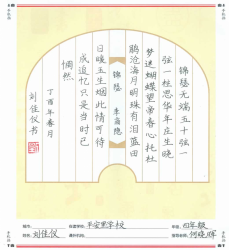 锦瑟无端五十弦一
弦一柱思华年庄生晓
梦迷蝴蝶望帝春心托杜
鹃沧海月明珠有泪蓝田
锦瑟 李商隐
日暖玉生烟此情可待
成追忆只是当时已
惘然
丁酉年春月
刘佳仪书
学校
年级: 四年级
姓名: 刘佳仪